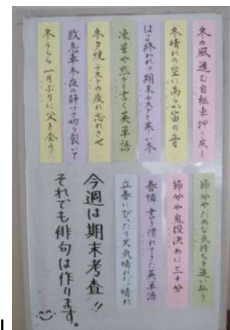 冬の風進む自転車押し戻し
冬晴れの空に高らか笛の音
はく終われ期末テストと寒い冬
凍星や黙々と書く英単語
冬夕焼テストの疲れ忘れさせ
救急車冬夜の静けさ切り裂いて
冬うらら一月ぶりに父と会う
節分やだめな気持ちを追い払う
節分や鬼役決めに三十分
春隣書き慣れてきた英単語
立春にぴったり天気晴れ晴れ
今週は期末考査!!
それでも俳句は作ります。